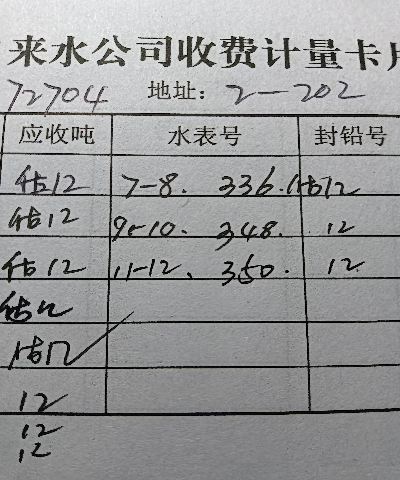 来水公司收费计量卡片
72704 地址：2-202
应收吨 水表号 封铅号
估12 7-8. 336. 估12
估12 9-10. 348. 12
估12 11-12. 350. 12
估12
估12
12
12
12